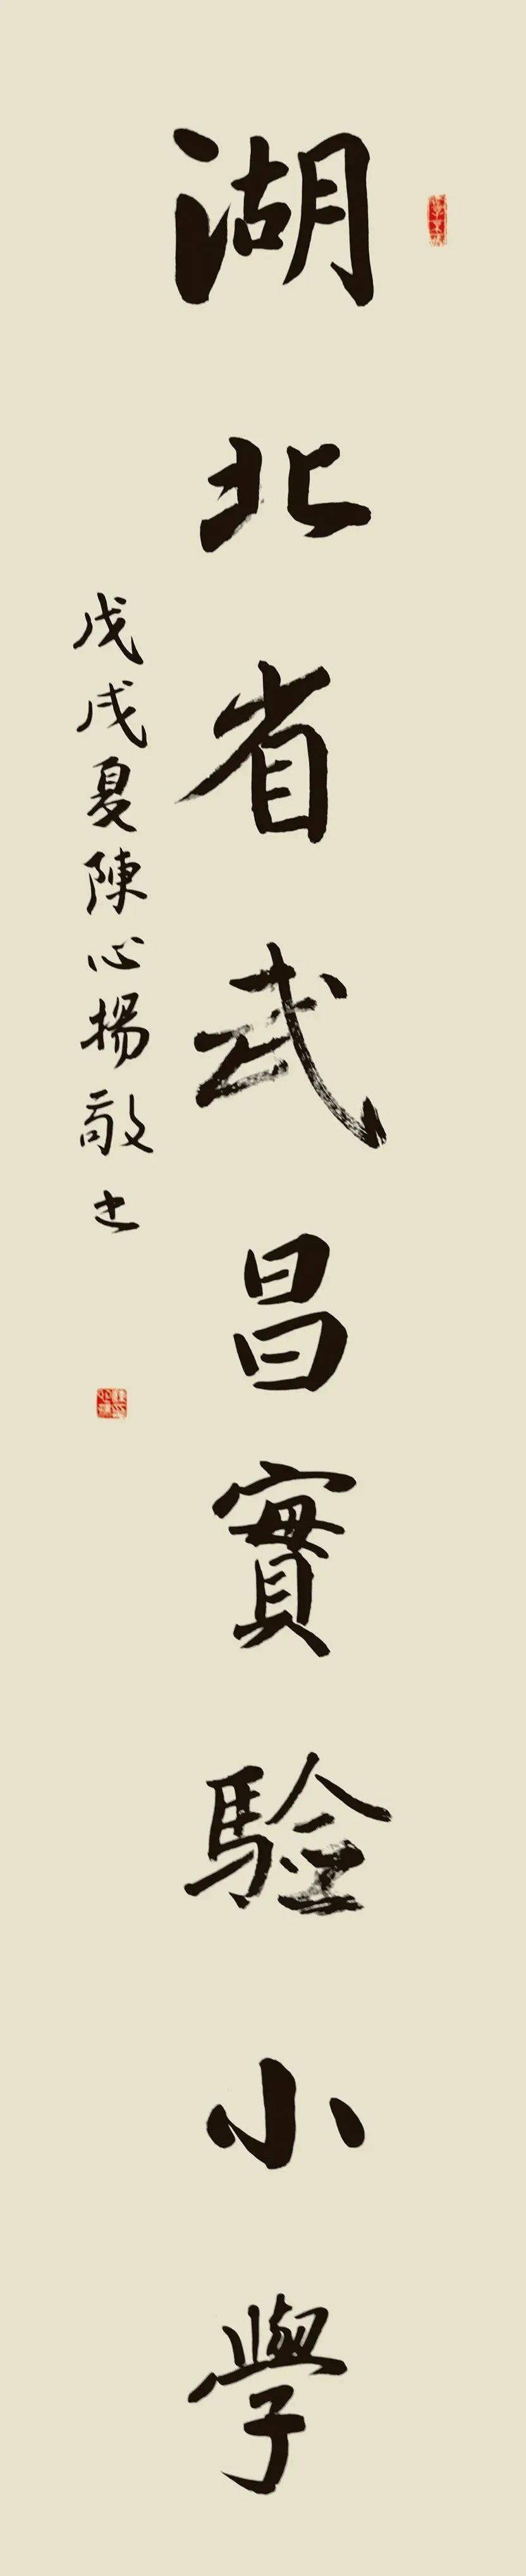 湖北省武昌實驗小學
戊戌夏陳心揚敬书